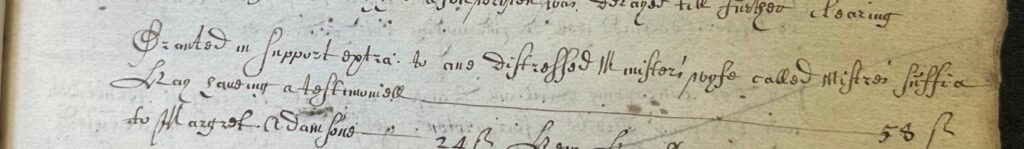 was delayed till further clearing
Granted in support extra: to ane distressed Ministers wyfe called Mistres Suffia
Hay haveing a testimoniell 58 ſ
to Margret Adamsone 24 ſ